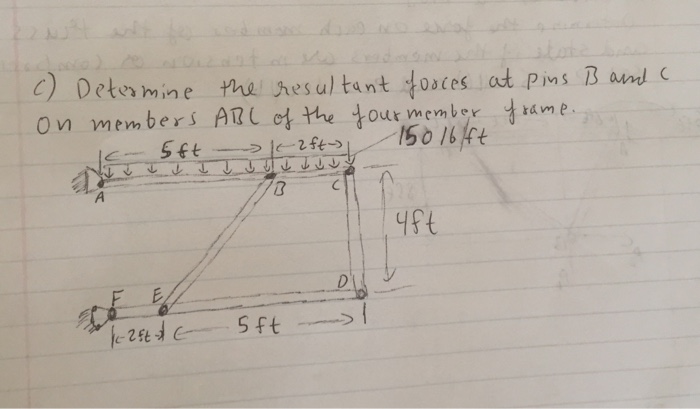 c) Determine the resultant forces at pins B and C
on members ABC of the four member frame.
5ft 2ft 150 lb/ft
A B C
4ft
F E D
2ft 5ft